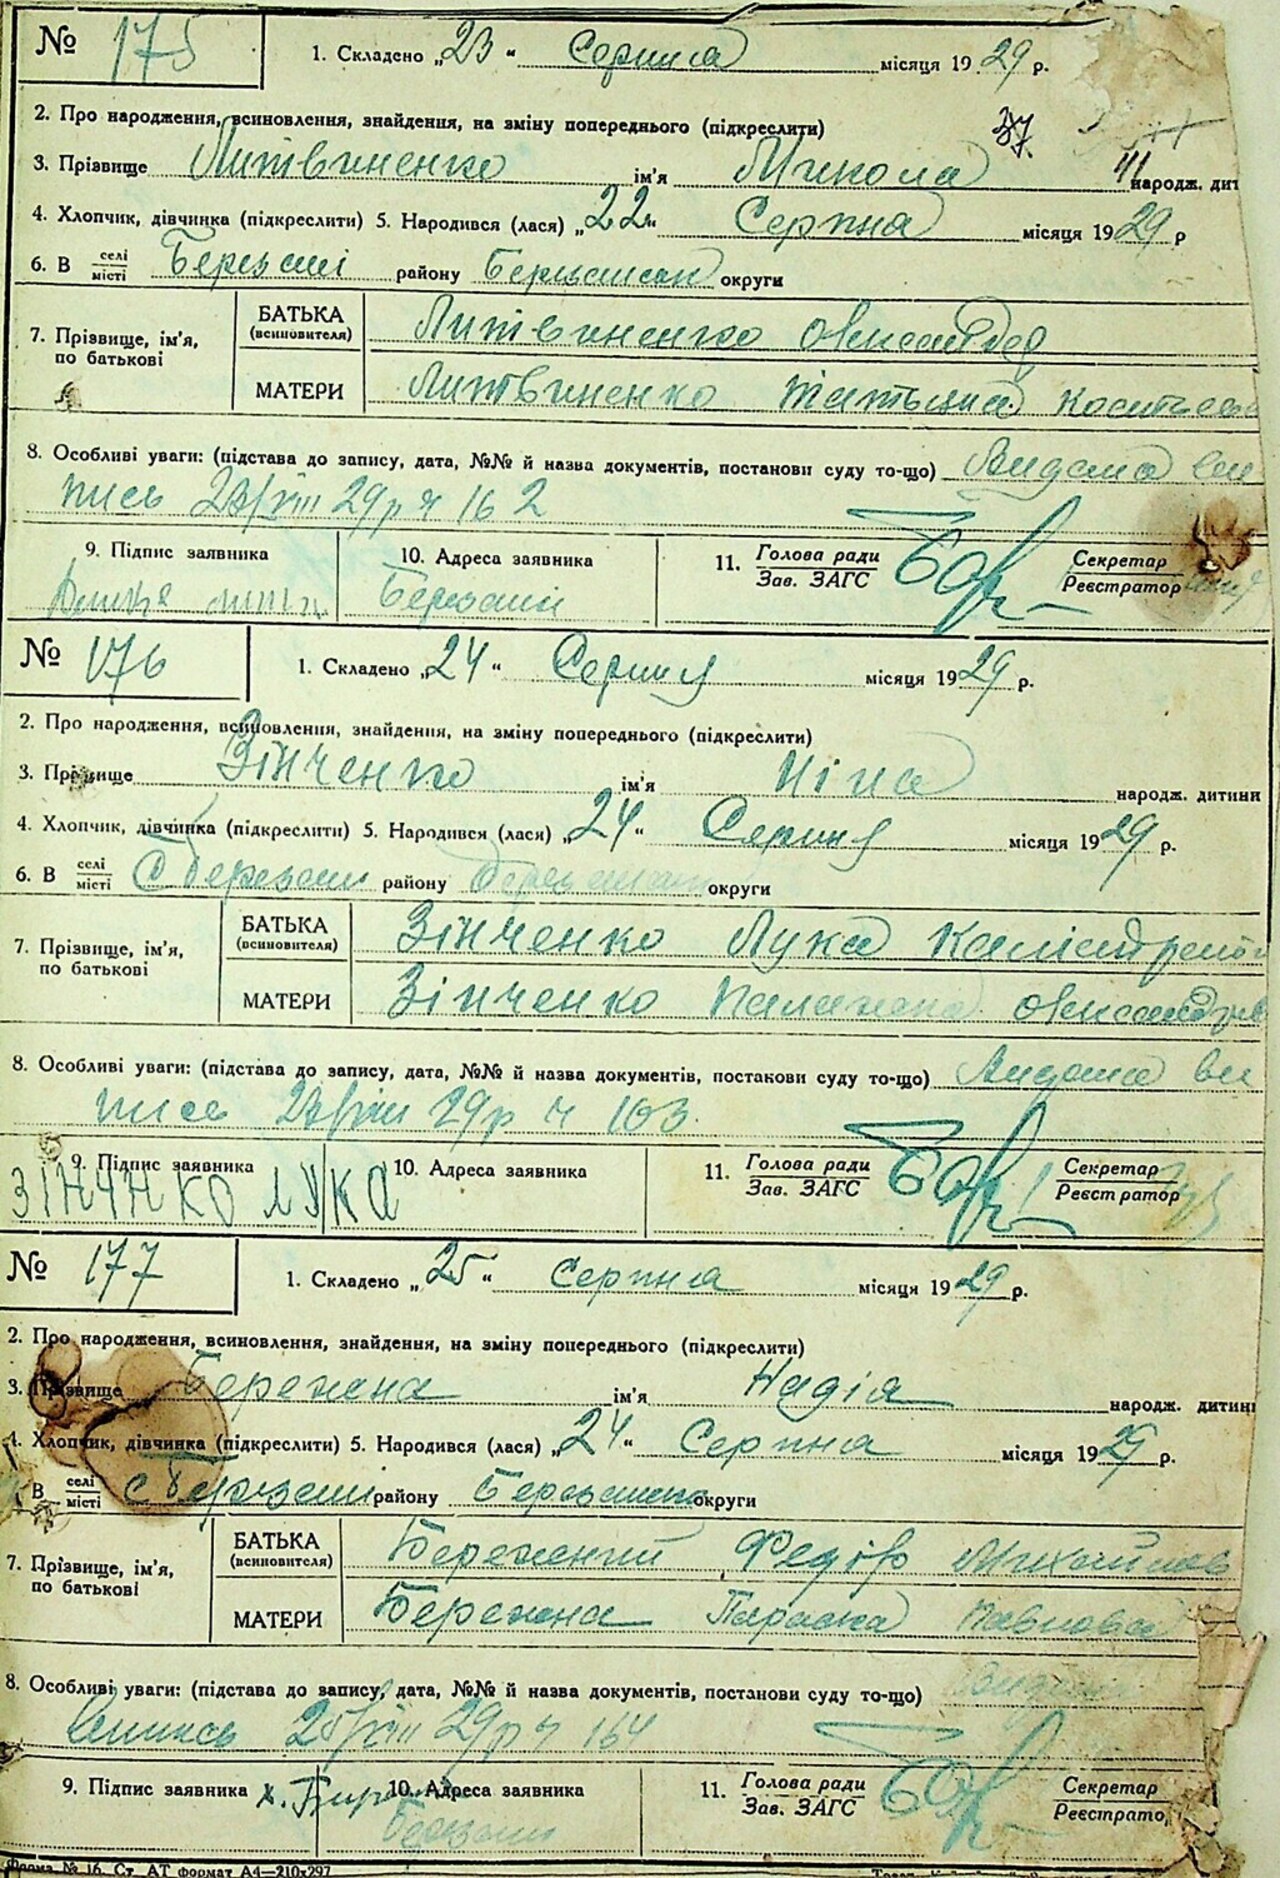 № 175 1. Складено „23“ Серпня місяця 1929 р.
2. Про народження, всиновлення, знайдення, на зміну попереднього (підкреслити) 37
3. Прізвище Литвиненко ім'я Микола народж. дит
4. Хлопчик, дівчинка (підкреслити) 5. Народився (лася) „22“ Серпня місяця 1929 р
6. В селі місті Березані району Березанськ округи
7. Прізвище, ім'я, по батькові
БАТЬКА (всиновителя) Литвиненко Олександер
МАТЕРИ Литвиненко Татьяна
8. Особливі уваги: (підстава до запису, дата, №№ й назва документів, постанови суду то-що) Видана ви
пись 23/VIII 29р ч 162
9. Підпис заявника 10. Адреса заявника 11. Голова ради Зав. ЗАГС Секретар Реєстратор
Березань
№ 176 1. Складено „24“ Серпня місяця 1929 р.
2. Про народження, всиновлення, знайдення, на зміну попереднього (підкреслити)
3. Прізвище Зінченко ім'я Ніна народж. дитини
4. Хлопчик, дівчинка (підкреслити) 5. Народився (лася) „24“ Серпня місяця 1929 р.
6. В селі місті с Березані району округи
7. Прізвище, ім'я, по батькові
БАТЬКА (всиновителя) Зінченко Лука
МАТЕРИ Зінченко
8. Особливі уваги: (підстава до запису, дата, №№ й назва документів, постанови суду то-що) Видана ви
пись 29р ч 163
9. Підпис заявника 10. Адреса заявника 11. Голова ради Зав. ЗАГС Секретар Реєстратор
ЗІНЧНКО ЛУКА
№ 177 1. Складено „25“ Серпня місяця 1929 р.
2. Про народження, всиновлення, знайдення, на зміну попереднього (підкреслити)
3. Прізвище Бережна ім'я Надія народж. дитин
4. Хлопчик, дівчинка (підкреслити) 5. Народився (лася) „24“ Серпня місяця 1929 р.
В селі місті с Березані району округи
7. Прізвище, ім'я, по батькові
БАТЬКА (всиновителя) Бережний Федір Михайлов
МАТЕРИ Бережна Параска Павлова
8. Особливі уваги: (підстава до запису, дата, №№ й назва документів, постанови суду то-що)
випись 25/VIII 29р ч 164
9. Підпис заявника 10. Адреса заявника 11. Голова ради Зав. ЗАГС Секретар Реєстрато
Березань
Форма № 16. Ст. АТ формат А4—210х297